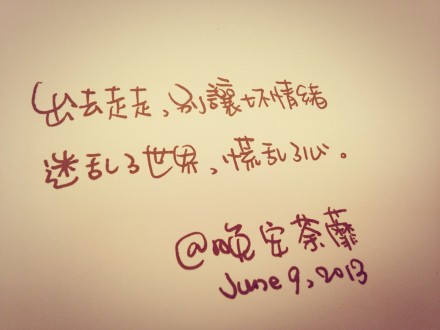 出去走走，别讓坏情緒
迷乱了世界，慌乱了心。
@晚安荼蘼
June 9, 2013